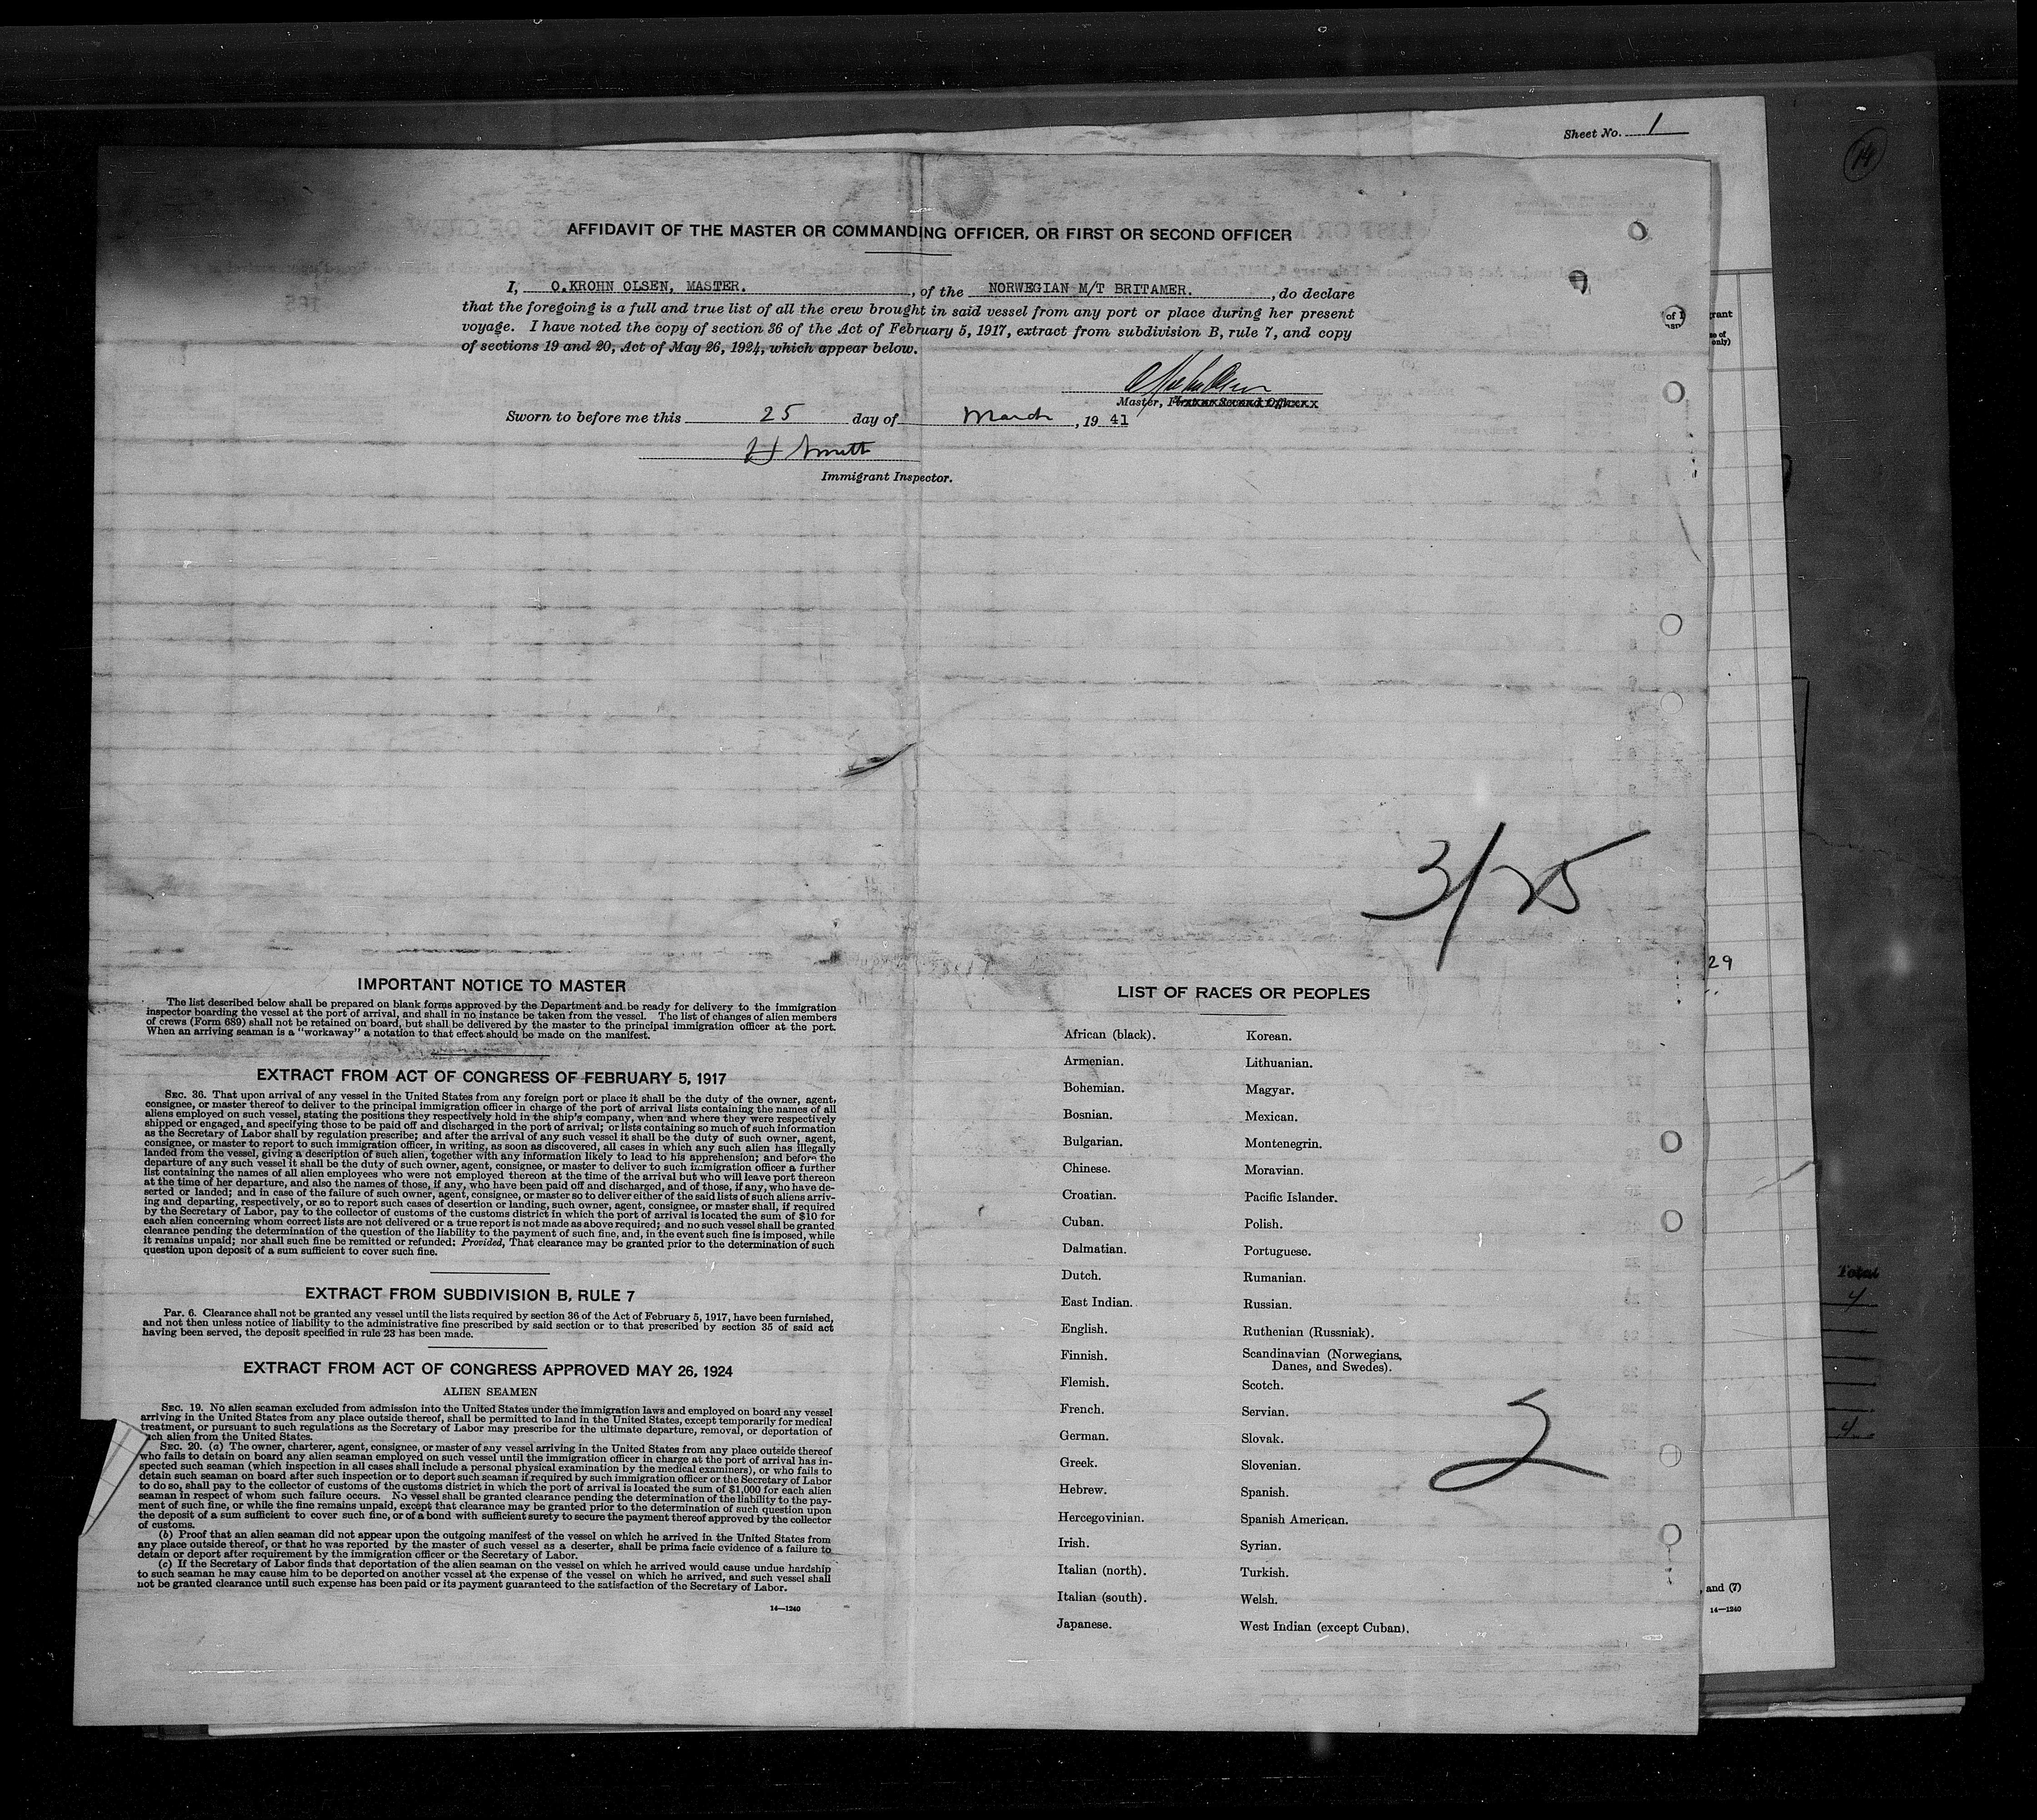 Sheet No. 1
14
AFFIDAVIT OF THE MASTER OR COMMANDING OFFICER, OR FIRST OR SECOND OFFICER
I, O.KROHN OLSEN, MASTER. , of the NORWEGIAN M/T BRITAMER. , do declare
that the foregoing is a full and true list of all the crew brought in said vessel from any port or place during her present
voyage. I have noted the copy of section 36 of the Act of February 5, 1917, extract from subdivision B, rule 7, and copy
of sections 19 and 20, Act of May 26, 1924, which appear below.
Master,
Sworn to before me this 25 day of March , 19 41
H Smith
Immigrant Inspector.
3/25
29
IMPORTANT NOTICE TO MASTER
The list described below shall be prepared on blank forms approved by the Department and be ready for delivery to the immigration
inspector boarding the vessel at the port of arrival, and shall in no instance be taken from the vessel. The list of changes of alien members
of crews (Form 689) shall not be retained on board, but shall be delivered by the master to the principal immigration officer at the port.
When an arriving seaman is a "workaway" a notation to that effect should be made on the manifest.
EXTRACT FROM ACT OF CONGRESS OF FEBRUARY 5, 1917
SEC. 36. That upon arrival of any vessel in the United States from any foreign port or place it shall be the duty of the owner, agent,
consignee, or master thereof to deliver to the principal immigration officer in charge of the port of arrival lists containing the names of all
aliens employed on such vessel, stating the positions they respectively hold in the ship's company, when and where they were respectively
shipped or engaged, and specifying those to be paid off and discharged in the port of arrival; or lists containing so much of such information
as the Secretary of Labor shall by regulation prescribe; and after the arrival of any such vessel it shall be the duty of such owner, agent,
consignee, or master to report to such immigration officer, in writing, as soon as discovered, all cases in which any such alien has illegally
landed from the vessel, giving a description of such alien, together with any information likely to lead to his apprehension; and before the
departure of any such vessel it shall be the duty of such owner, agent, consignee, or master to deliver to such immigration officer a further
list containing the names of all alien employees who were not employed thereon at the time of the arrival but who will leave port thereon
at the time of her departure, and also the names of those, if any, who have been paid off and discharged, and of those, if any, who have de-
serted or landed; and in case of the failure of such owner, agent, consignee, or master so to deliver either of the said lists of such aliens arriv-
ing and departing, respectively, or so to report such cases of desertion or landing, such owner, agent, consignee, or master shall, if required
by the Secretary of Labor, pay to the collector of customs of the customs district in which the port of arrival is located the sum of $10 for
each alien concerning whom correct lists are not delivered or a true report is not made as above required; and no such vessel shall be granted
clearance pending the determination of the question of the liability to the payment of such fine, and, in the event such fine is imposed, while
it remains unpaid; nor shall such fine be remitted or refunded: Provided, That clearance may be granted prior to the determination of such
question upon deposit of a sum sufficient to cover such fine.
EXTRACT FROM SUBDIVISION B, RULE 7
Par. 6. Clearance shall not be granted any vessel until the lists required by section 36 of the Act of February 5, 1917, have been furnished,
and not then unless notice of liability to the administrative fine prescribed by said section or to that prescribed by section 35 of said act
having been served, the deposit specified in rule 23 has been made.
EXTRACT FROM ACT OF CONGRESS APPROVED MAY 26, 1924
ALIEN SEAMEN
SEC. 19. No alien seaman excluded from admission into the United States under the immigration laws and employed on board any vessel
arriving in the United States from any place outside thereof, shall be permitted to land in the United States, except temporarily for medical
treatment, or pursuant to such regulations as the Secretary of Labor may prescribe for the ultimate departure, removal, or deportation of
such alien from the United States.
SEC. 20. (a) The owner, charterer, agent, consignee, or master of any vessel arriving in the United States from any place outside thereof
who fails to detain on board any alien seaman employed on such vessel until the immigration officer in charge at the port of arrival has in-
spected such seaman (which inspection in all cases shall include a personal physical examination by the medical examiners), or who fails to
detain such seaman on board after such inspection or to deport such seaman if required by such immigration officer or the Secretary of Labor
to do so, shall pay to the collector of customs of the customs district in which the port of arrival is located the sum of $1,000 for each alien
seaman in respect of whom such failure occurs. No vessel shall be granted clearance pending the determination of the liability to the pay-
ment of such fine, or while the fine remains unpaid, except that clearance may be granted prior to the determination of such question upon
the deposit of a sum sufficient to cover such fine, or of a bond with sufficient surety to secure the payment thereof approved by the collector
of customs.
(b) Proof that an alien seaman did not appear upon the outgoing manifest of the vessel on which he arrived in the United States from
any place outside thereof, or that he was reported by the master of such vessel as a deserter, shall be prima facie evidence of a failure to
detain or deport after requirement by the immigration officer or the Secretary of Labor.
(c) If the Secretary of Labor finds that deportation of the alien seaman on the vessel on which he arrived would cause undue hardship
to such seaman he may cause him to be deported on another vessel at the expense of the vessel on which he arrived, and such vessel shall
not be granted clearance until such expense has been paid or its payment guaranteed to the satisfaction of the Secretary of Labor.
14—1240
LIST OF RACES OR PEOPLES
African (black).
Armenian.
Bohemian.
Bosnian.
Bulgarian.
Chinese.
Croatian.
Cuban.
Dalmatian.
Dutch.
East Indian.
English.
Finnish.
Flemish.
French.
German.
Greek.
Hebrew.
Hercegovinian.
Irish.
Italian (north).
Italian (south).
Japanese.
Korean.
Lithuanian.
Magyar.
Mexican.
Montenegrin.
Moravian.
Pacific Islander.
Polish.
Portuguese.
Rumanian.
Russian.
Ruthenian (Russniak).
Scandinavian (Norwegians,
Danes, and Swedes).
Scotch.
Servian.
Slovak.
Slovenian.
Spanish.
Spanish American.
Syrian.
Turkish.
Welsh.
West Indian (except Cuban).
2
Total
4
4
, and (7)
14—1240